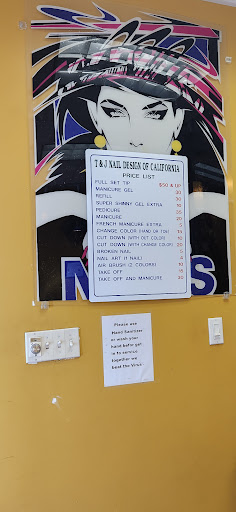 T & J NAIL DESIGN OF CALIFORNIA
PRICE LIST
FULL SET TIP $50 & UP
MANICURE GEL 30
REFILL 30
SUPER SHINNY GEL EXTRA 10
PEDICURE 35
MANICURE 20
FRENCH MANICURE EXTRA 5
CHANGE COLOR (HAND OR TOE) 10
CUT DOWN (WITH OUT COLOR) 10
CUT DOWN (WITH CHANGE COLOR) 20
BROKEN NAIL 5
NAIL ART (1 NAIL) 4
AIR BRUSH (2 COLORS) 10
TAKE OFF 15
TAKE OFF AND MANICURE 30
Please use
Hand Sanitizer
or wash your
hand befor get
in to service
together we
beat the Virus.